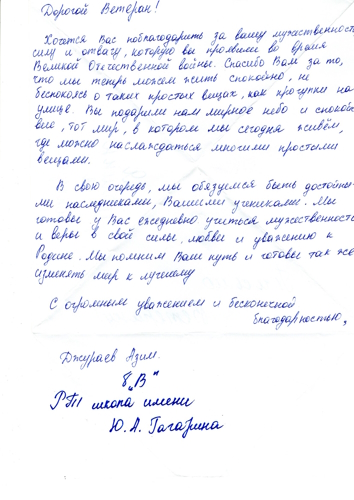 Дорогой Ветеран!
Хочется Вас поблагодарить за вашу мужественность
силу и отвагу, которую вы проявили во время
Великой Отечественной войны. Спасибо Вам за то,
что мы теперь можем жить спокойно, не
беспокоясь о таких простых вещах, как прогулки на
улице. Вы подарили нам мирное небо и спокойс
вие, тот мир, в котором мы сегодня живём,
где можно наслаждаться многими простыми
вещами.
В свою очередь, мы обязуемся быть достойны-
ми наследниками, Вашими учениками. Мы
готовы у Вас ежедневно учиться мужественности
и веры в свои силы, любви и уважению к
Родине. Мы помним Ваш путь и готовы так же
изменять мир к лучшему
С огромным уважением и бесконечной
благодарностью,
Джураев Азим.
8 "В"
РТП школа имени
Ю.А. Гагарина